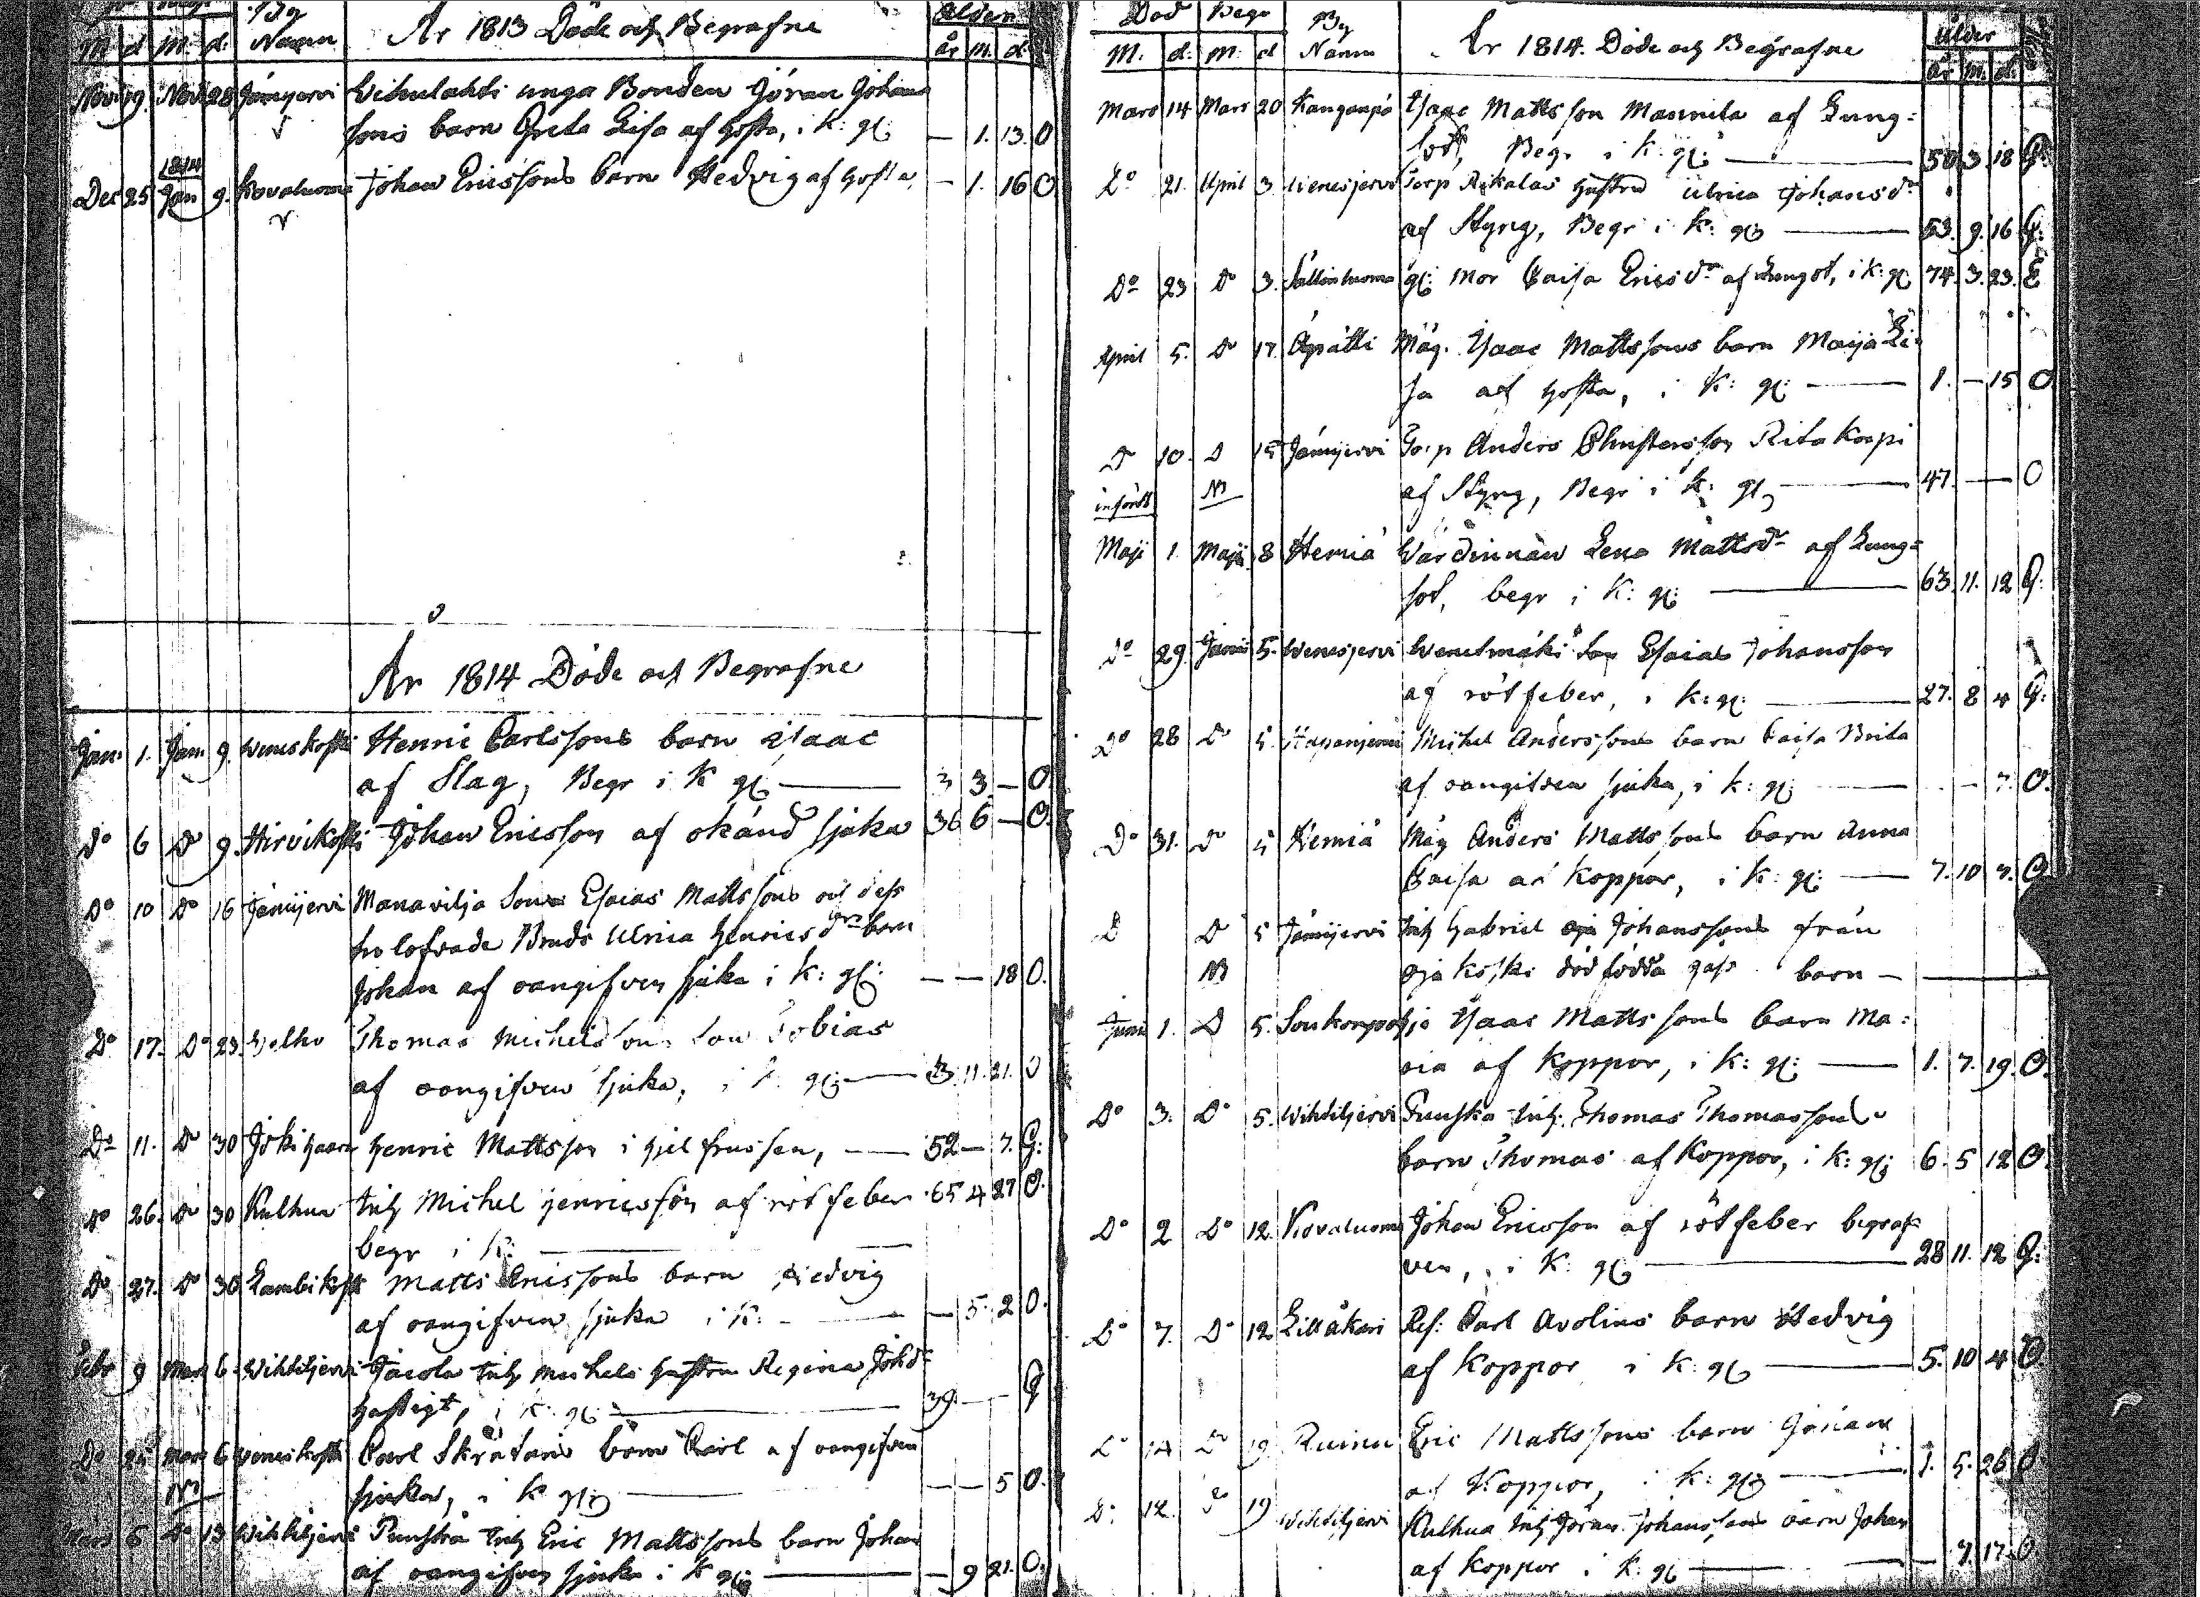 By Ålder
M d M. d: Namn År 1813 Döde och Begrafne år m. d
Nov 19. Nov 28 Jämijervi Wihulahti unga Bonden Göran Johans
sons barn Greta Lisa af hosta, i K: gl: — 1. 13. O
1814
Dec 25 Jan 9. Kovaluoma Johan Ericssons barn Hedvig af hosta, — 1. 16 O
År 1814 Döde och Begrafne
Jan: 1. Jan. 9. Weneskoski Henric Carlssons barn Isaac
af Slag, Begr i K gl: — 3 3 — O.
Do 6 Do 9. Hirvikoski Johan Ericsson af okänd sjuka 36 6 — O.
Do 10 Do 16 Jämijervi Manavilja Sons Esaias Mattssons och dess
trolofvade Bruds Ulrica Henricsdrs barn
Johan af oangifven sjuka i K: gl: — — 18 O.
Do 17. Do 23. Thomas Michelssons Son Tobias
af oangifven sjuka, i K. gl: — 11. 21. O
Do 11. Do 30 Henric Mattsson i hjel frusen, — 52 — 7. G:
Do 26. Do 30 Kulhua Inh Michel Henricsson af rötfeber 65 4 27 O.
begr i K: —
Do 27. Do 30 Lambikoski Matts Ericssons barn Hedvig
af oangifven sjuka i K: — — 5. 2 O.
Febr 9 Mars 6. Wihteljervi Jacola Inh Michels hustru Regina Johdr
hastigt, i K: gl: — 39. — — G
Do 25 Mars 6 Weneskoski Carl Skrätars barn Carl af oangifven
NB sjuka, i K gl: — — — 5 O.
Mars 6 Do 13 Wihteljervi Punstra Inh Eric Mattssons barn Johan
af oangifven sjuka i K gl: — — 9 21. O.
Död Begr By Ålder
M. d: M: d Namn År 1814. Döde och Begrafne år m. d:
Mars 14 Mars 20 Kangaspä Isaac Mattsson Mannila af Lung=
sot, Begr i K: gl: — 50 3 18 G:
Do 21. April 3 Wenesjervi Torp Rikalas hustru Ulrica Johansdr
af Styng, Begr i K: gl: — 53. 9. 16 G:
Do 23 Do 3. gl: Mor Caisa Ericsdr af Lungsot, i K: gl: 74. 3. 23. E
April 5. Do 17. Äpätti Måg. Isaac Mattssons barn Maija Li=
sa af hosta, i K: gl: — 1. — 15 O
D 10. D 15 Jämijervi Torp Anders Christersson Ritakorpi
införts NB af Styng, Begr i K: gl: — 47. — — O
Maji 1. Maji 8 Hemiä Wärdinnan Lena Mattsdr af Lung=
sot, begr i K: gl: — 63. 11. 12 G.
Do 29. Junii 5. Wenesjervi Wenelmäki Son Esaias Johansson
af rötfeber, i K: gl: — 27. 8 4 G:
Do 28 Do 5. Michel Anderssons barn Caisa Brita
af oangifven sjuka, i K: gl: — — 7. O.
Do 31. Do 5 Hemiä Måg Anders Mattssons barn Anna
Caisa af Koppor, i K: gl: — 7. 10 7. O.
D Do 5 Jämijervi Inh Gabriel Oja Johanssons från
NB Ojakoski dödfödda barn —
Juni 1. D 5. Isaac Mattssons barn Ma=
ria af Koppor, i K: gl: — 1. 7. 19. O.
Do 3. Do 5. Wihteljervi Inh. Thomas Thomassons
barn Thomas af Koppor, i K: gl: 6. 5 12 O.
Do 2 Do 12. Kovaluoma Johan Ericsson af rötfeber begraf=
ven, i K: gl: — 28 11. 12 G.
Do 7. Do 12 Lillåkari Ref: Carl Avolins barn Hedvig
af Koppor i K: gl: — 5. 10 4 O.
Do 14 Do 19. Eric Mattssons barn Göran
af Koppor, i K: gl: — 1. 5. 26 O.
Do 12. Do 19 Wihteljervi Kulhua Inh Göran Johanssons barn Johan
af Koppor i K: gl: — — 7. 17. O.